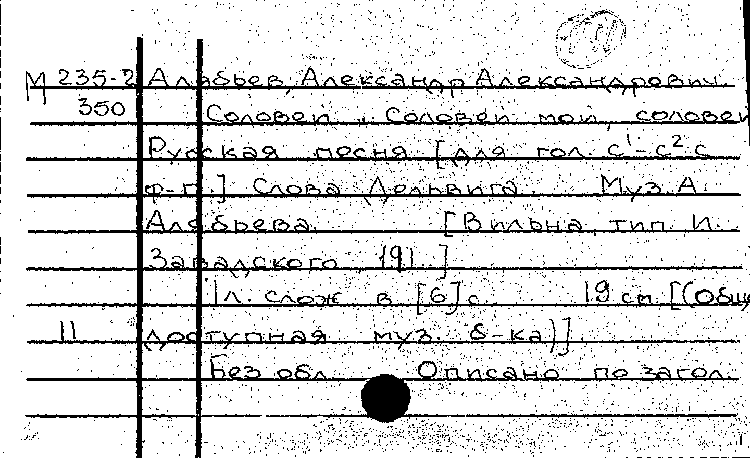 М 235-2 Алябьев, Александр Александрович.
350 Соловей „Соловей мой, соловей
Русская песня [для гол. с¹-с² с
ф-п.] Слова Дельвига. Муз. А.
Алябьева. [Вильна, тип. И.
Завадского 191 ]
1 л. слож. в [6] с. 19 см [(Общ
11 доступная муз. б-ка)]
Без обл. Описано по загол.